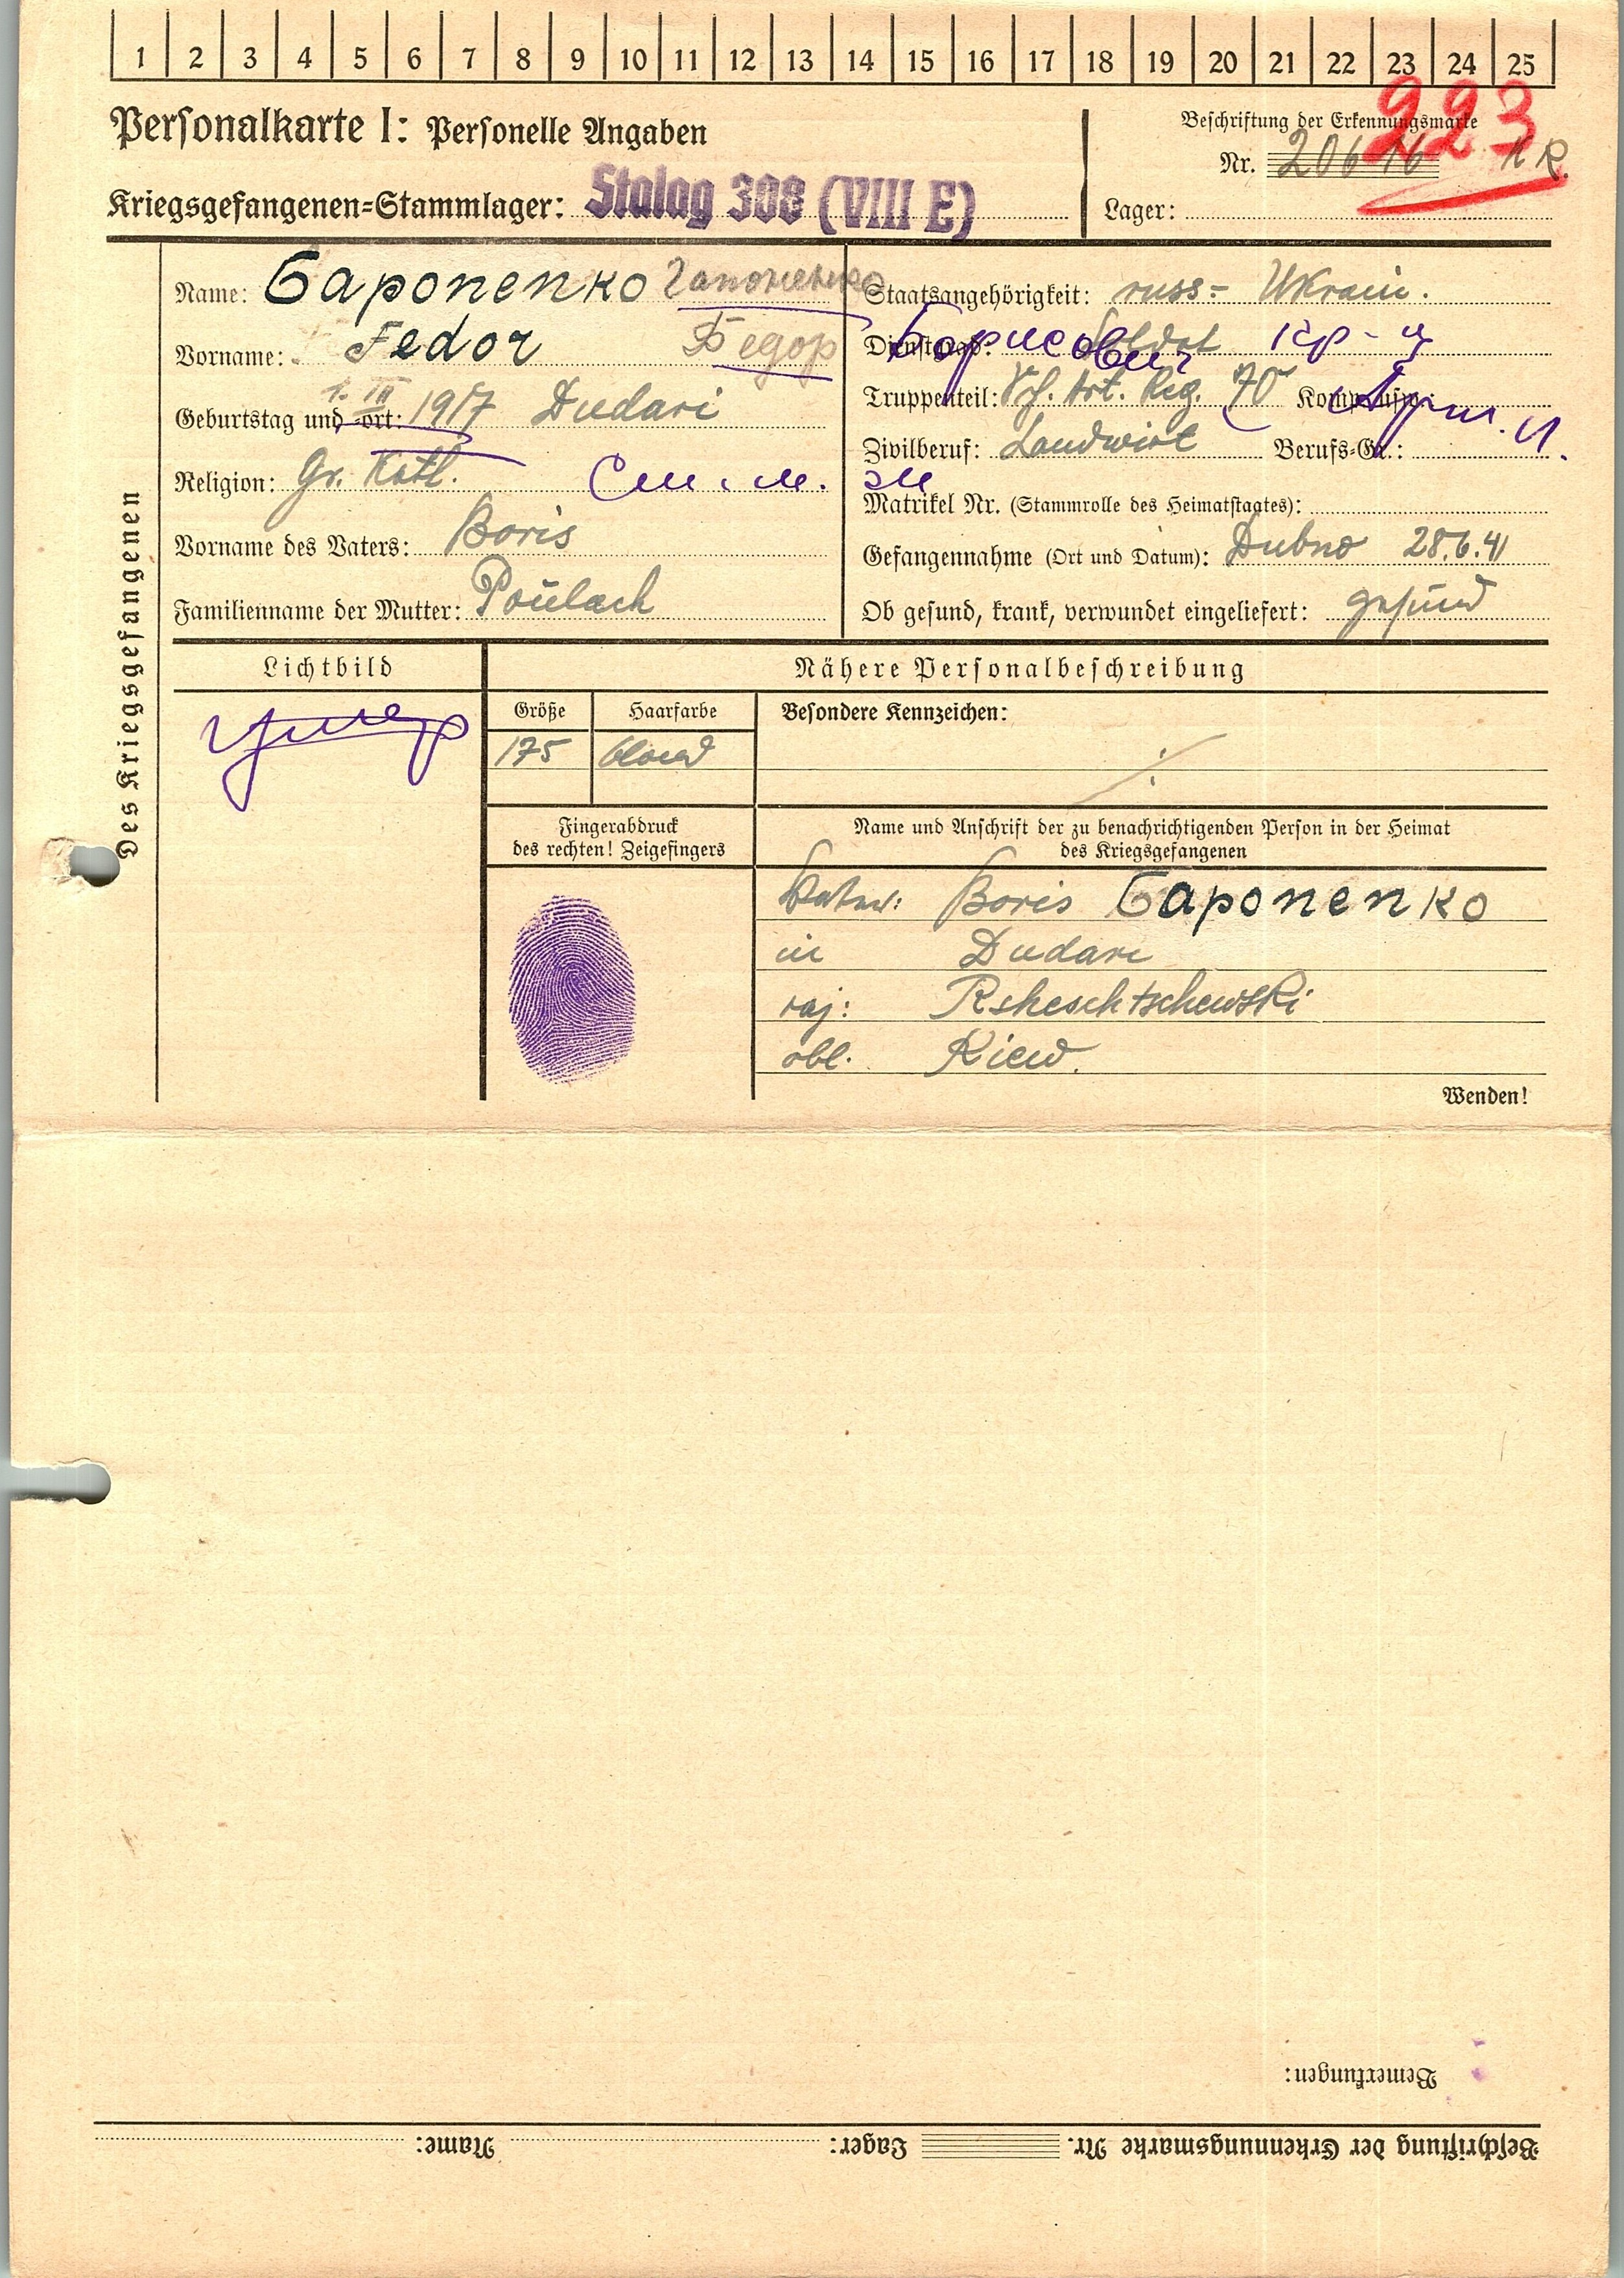 1 2 3 4 5 6 7 8 9 10 11 12 13 14 15 16 17 18 19 20 21 22 23 24 25
Personalkarte I: Personelle Angaben
Beschriftung der Erkennungsmarke
223
Nr. 20616
Kriegsgefangenen-Stammlager: Stalag 308 (VIII E)
Lager:
Des Kriegsgefangenen
Name: Gaponenko
Vorname: Fedor Федор
Geburtstag und -ort: 1. III 1917 Dudari
Religion: Gr. Kath.
Vorname des Vaters: Boris
Familienname der Mutter:
Staatsangehörigkeit: russ.- Ukrain.
Dienstgrad: Soldat Борисович кр-ц
Truppenteil: Art. Reg. 70 Kompanie:
Zivilberuf: Landwirt Berufs-Gr.:
Matrikel Nr. (Stammrolle des Heimatstaates):
Gefangennahme (Ort und Datum): Dubno 28.6.41
Ob gesund, krank, verwundet eingeliefert: gesund
Lichtbild
умер
Nähere Personalbeschreibung
Größe Haarfarbe Besondere Kennzeichen:
175 blond
Fingerabdruck
des rechten! Zeigefingers
Name und Anschrift der zu benachrichtigenden Person in der Heimat
des Kriegsgefangenen
Vater: Boris Gaponenko
in Dudari
raj: Rsheschtschewski
obl. Kiew.
Wenden!
Bemerkungen:
Beschriftung der Erkennungsmarke Nr. Lager: Name: